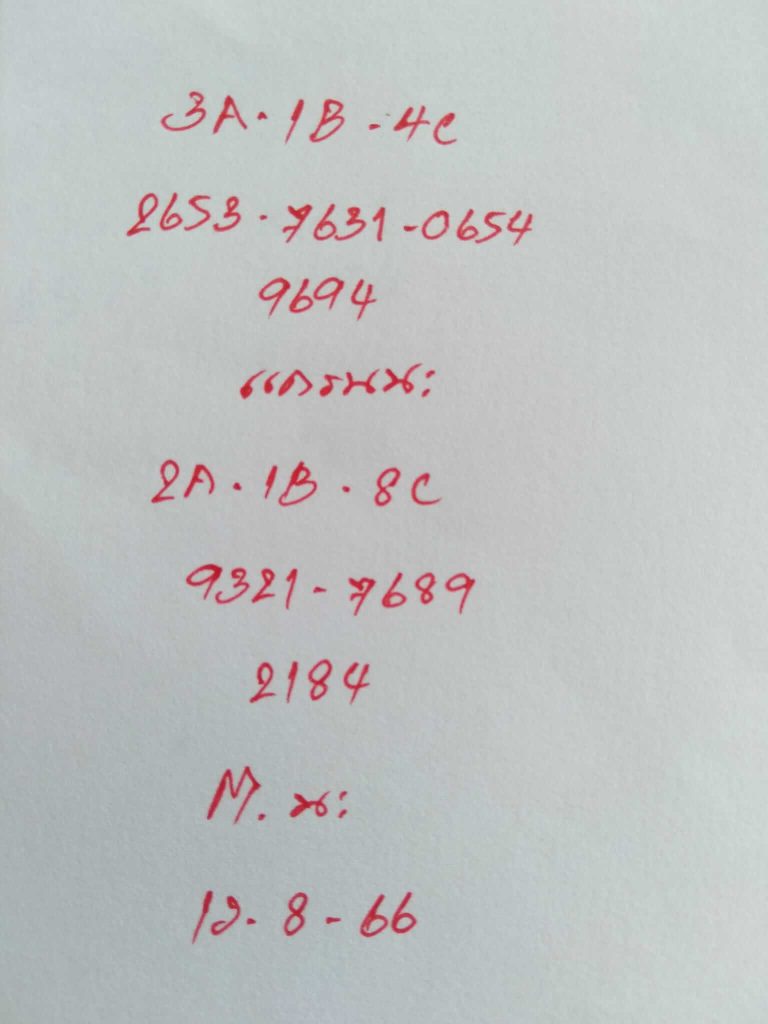 3A · 1B - 4C
2653 - 7631 - 0654
9694
2A · 1B · 8C
9321 - 7689
2184
M. นะ
12 - 8 - 66